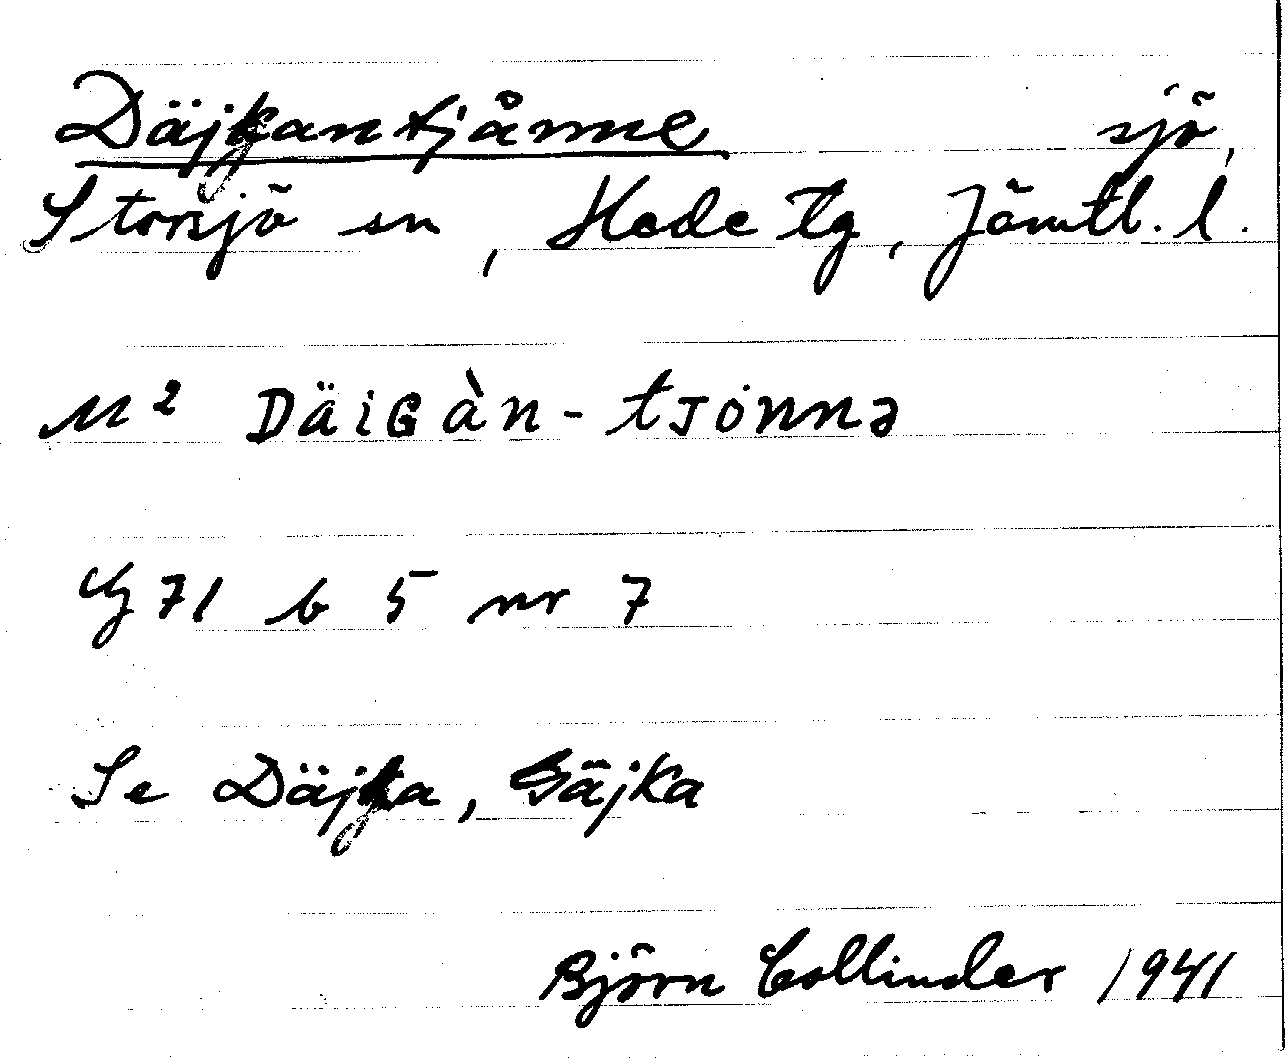 Däjkantjånne sjö,
Storsjö sn, Hede tg, Jämtl. l.
M² DäiGàn-tjȯnnə
G 71 b 5 nr 7
Se Däjka, Gäjka
Björn Collinder 1941